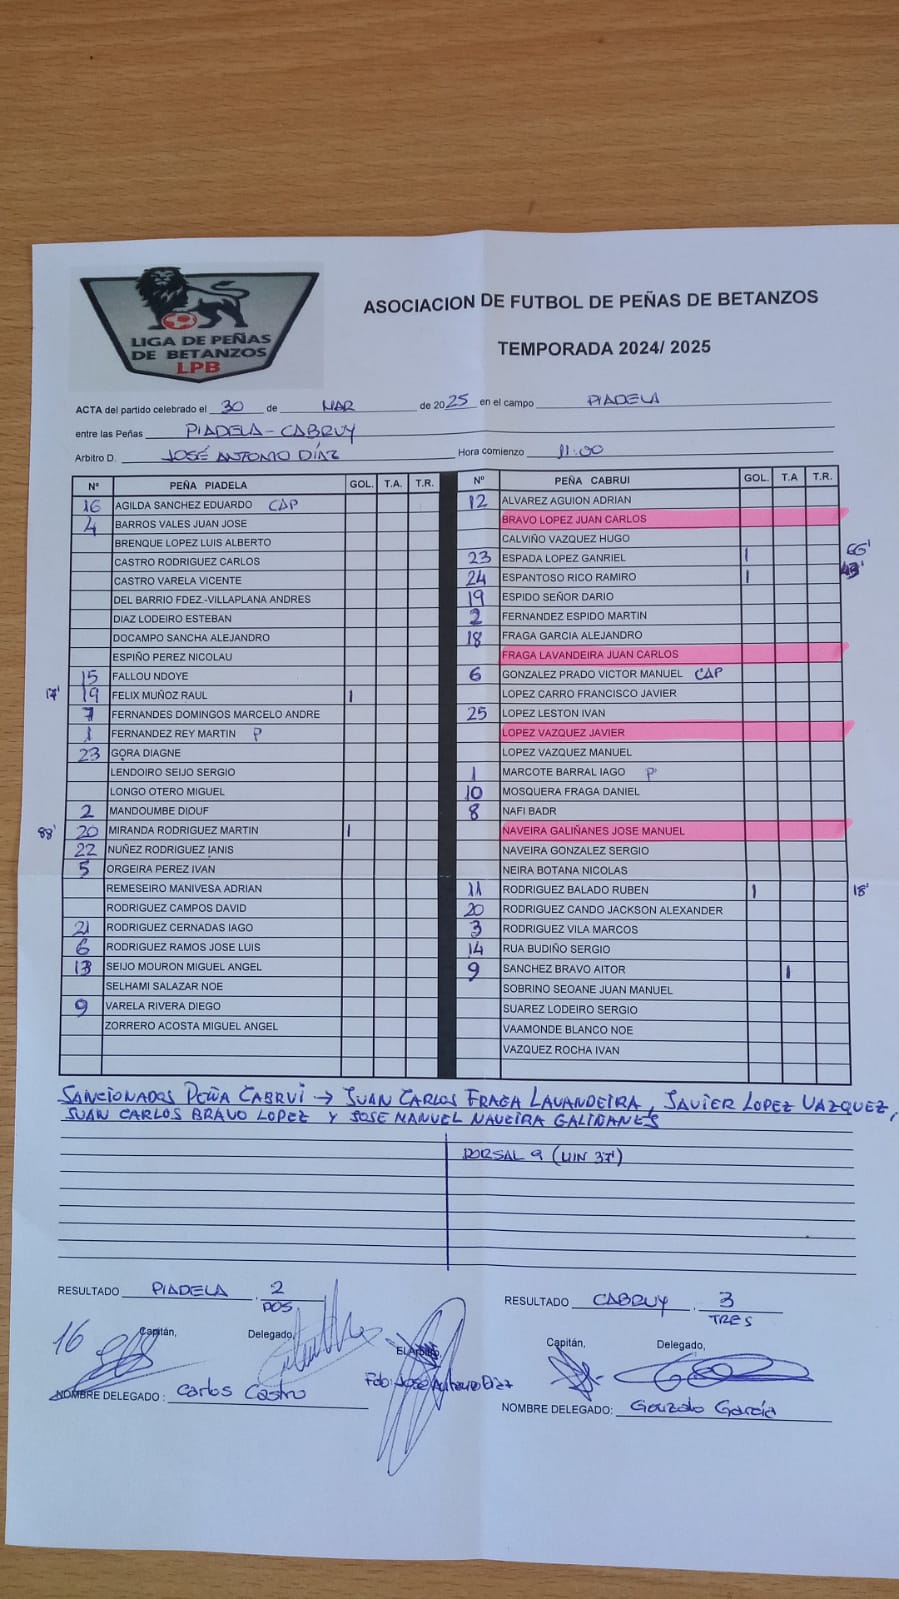 LIGA DE PEÑAS
DE BETANZOS
LPB
ASOCIACION DE FUTBOL DE PEÑAS DE BETANZOS
TEMPORADA 2024/ 2025
ACTA del partido celebrado el 30 de MAR de 2025 en el campo PIADELA
entre las Peñas PIADELA-CABRUY
Arbitro D. JOSÉ ANTONIO DÍAZ Hora comienzo 11:00
Nº PEÑA PIADELA GOL. T.A. T.R.
16 AGILDA SANCHEZ EDUARDO CAP
4 BARROS VALES JUAN JOSE
BRENQUE LOPEZ LUIS ALBERTO
CASTRO RODRIGUEZ CARLOS
CASTRO VARELA VICENTE
DEL BARRIO FDEZ.-VILLAPLANA ANDRES
DIAZ LODEIRO ESTEBAN
DOCAMPO SANCHA ALEJANDRO
ESPIÑO PEREZ NICOLAU
15 FALLOU NDOYE
17' 19 FELIX MUÑOZ RAUL 1
7 FERNANDES DOMINGOS MARCELO ANDRE
1 FERNANDEZ REY MARTIN P
23 GORA DIAGNE
LENDOIRO SEIJO SERGIO
LONGO OTERO MIGUEL
2 MANDOUMBE DIOUF
88' 20 MIRANDA RODRIGUEZ MARTIN 1
22 NUÑEZ RODRIGUEZ IANIS
5 ORGEIRA PEREZ IVAN
REMESEIRO MANIVESA ADRIAN
RODRIGUEZ CAMPOS DAVID
21 RODRIGUEZ CERNADAS IAGO
6 RODRIGUEZ RAMOS JOSE LUIS
13 SEIJO MOURON MIGUEL ANGEL
SELHAMI SALAZAR NOE
9 VARELA RIVERA DIEGO
ZORRERO ACOSTA MIGUEL ANGEL
Nº PEÑA CABRUI GOL. T.A T.R.
12 ALVAREZ AGUION ADRIAN
BRAVO LOPEZ JUAN CARLOS
CALVIÑO VAZQUEZ HUGO
23 ESPADA LOPEZ GANRIEL 1 66'
24 ESPANTOSO RICO RAMIRO 1
19 ESPIDO SEÑOR DARIO
2 FERNANDEZ ESPIDO MARTIN
18 FRAGA GARCIA ALEJANDRO
FRAGA LAVANDEIRA JUAN CARLOS
6 GONZALEZ PRADO VICTOR MANUEL CAP
LOPEZ CARRO FRANCISCO JAVIER
25 LOPEZ LESTON IVAN
LOPEZ VAZQUEZ JAVIER
LOPEZ VAZQUEZ MANUEL
1 MARCOTE BARRAL IAGO P
10 MOSQUERA FRAGA DANIEL
8 NAFI BADR
NAVEIRA GALIÑANES JOSE MANUEL
NAVEIRA GONZALEZ SERGIO
NEIRA BOTANA NICOLAS
11 RODRIGUEZ BALADO RUBEN 1 18'
20 RODRIGUEZ CANDO JACKSON ALEXANDER
3 RODRIGUEZ VILA MARCOS
14 RUA BUDIÑO SERGIO
9 SANCHEZ BRAVO AITOR 1
SOBRINO SEOANE JUAN MANUEL
SUAREZ LODEIRO SERGIO
VAAMONDE BLANCO NOE
VAZQUEZ ROCHA IVAN
SANCIONADOS PEÑA CABRUI → JUAN CARLOS FRAGA LAVANDEIRA, JAVIER LOPEZ VAZQUEZ,
JUAN CARLOS BRAVO LOPEZ Y JOSE MANUEL NAVEIRA GALIÑANES
DORSAL 9 (MIN 37')
RESULTADO PIADELA . 2
DOS
RESULTADO CABRUY . 3
TRES
16 Capitán, Delegado, El Arbitro, Capitán, Delegado,
Fdo: José Antonio Díaz
NOMBRE DELEGADO : Carlos Castro
NOMBRE DELEGADO: Gonzalo García